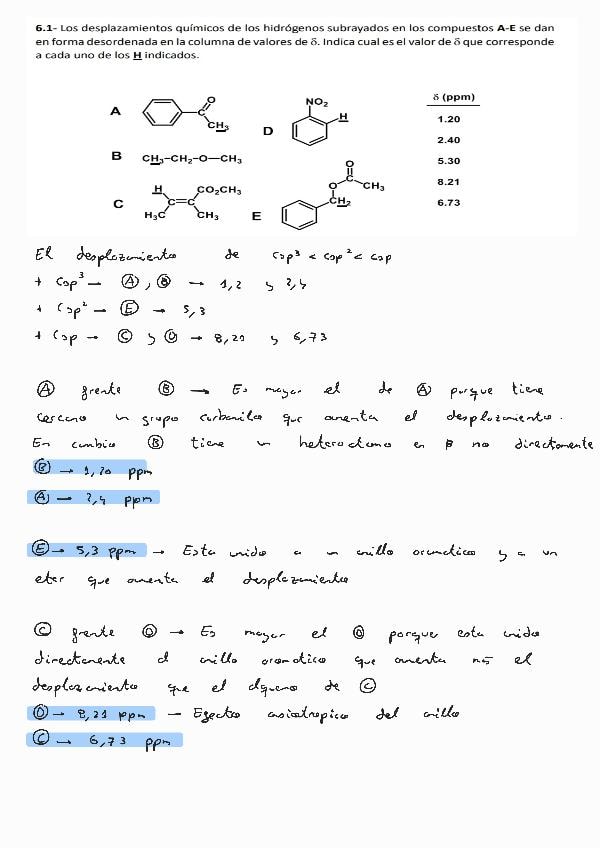 6.1- Los desplazamientos químicos de los hidrógenos subrayados en los compuestos A-E se dan
en forma desordenada en la columna de valores de δ. Indica cual es el valor de δ que corresponde
a cada uno de los H indicados.
A
O
C
CH3
D
NO2
H
δ (ppm)
1.20
2.40
5.30
8.21
6.73
B
CH3-CH2-O-CH3
C
H
CO2CH3
C=C
H3C
CH3
E
O
O
C
CH3
CH2
El desplazamiento de Csp3 < Csp2 < Csp
+ Csp3 → A, B → 1,2 y 2,4
+ Csp2 → E → 5,3
+ Csp → C y D → 8,21 y 6,73
A frente B → Es mayor el de A porque tiene
cercano un grupo carbonilo que aumenta el desplazamiento.
En cambio B tiene un heteroatomo en β no directamente
B → 1,20 ppm
A → 2,4 ppm
E → 5,3 ppm → Esta unido a un anillo aromatico y a un
eter que aumenta el desplazamiento
C frente D → Es mayor el D porque esta unido
directamente al anillo aromatico que aumenta más el
desplazamiento que el alqueno de C
D → 8,21 ppm → Efecto anisotropico del anillo
C → 6,73 ppm